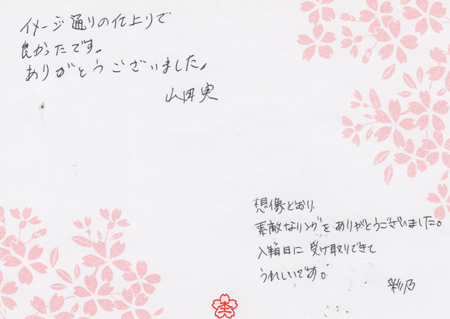 イメージ通りの仕上りで
良かったです。
ありがとうございました。
山田実
想像どおり
素敵なリングをありがとうございました。
入籍日に受け取りできて
うれしいです。
彩乃